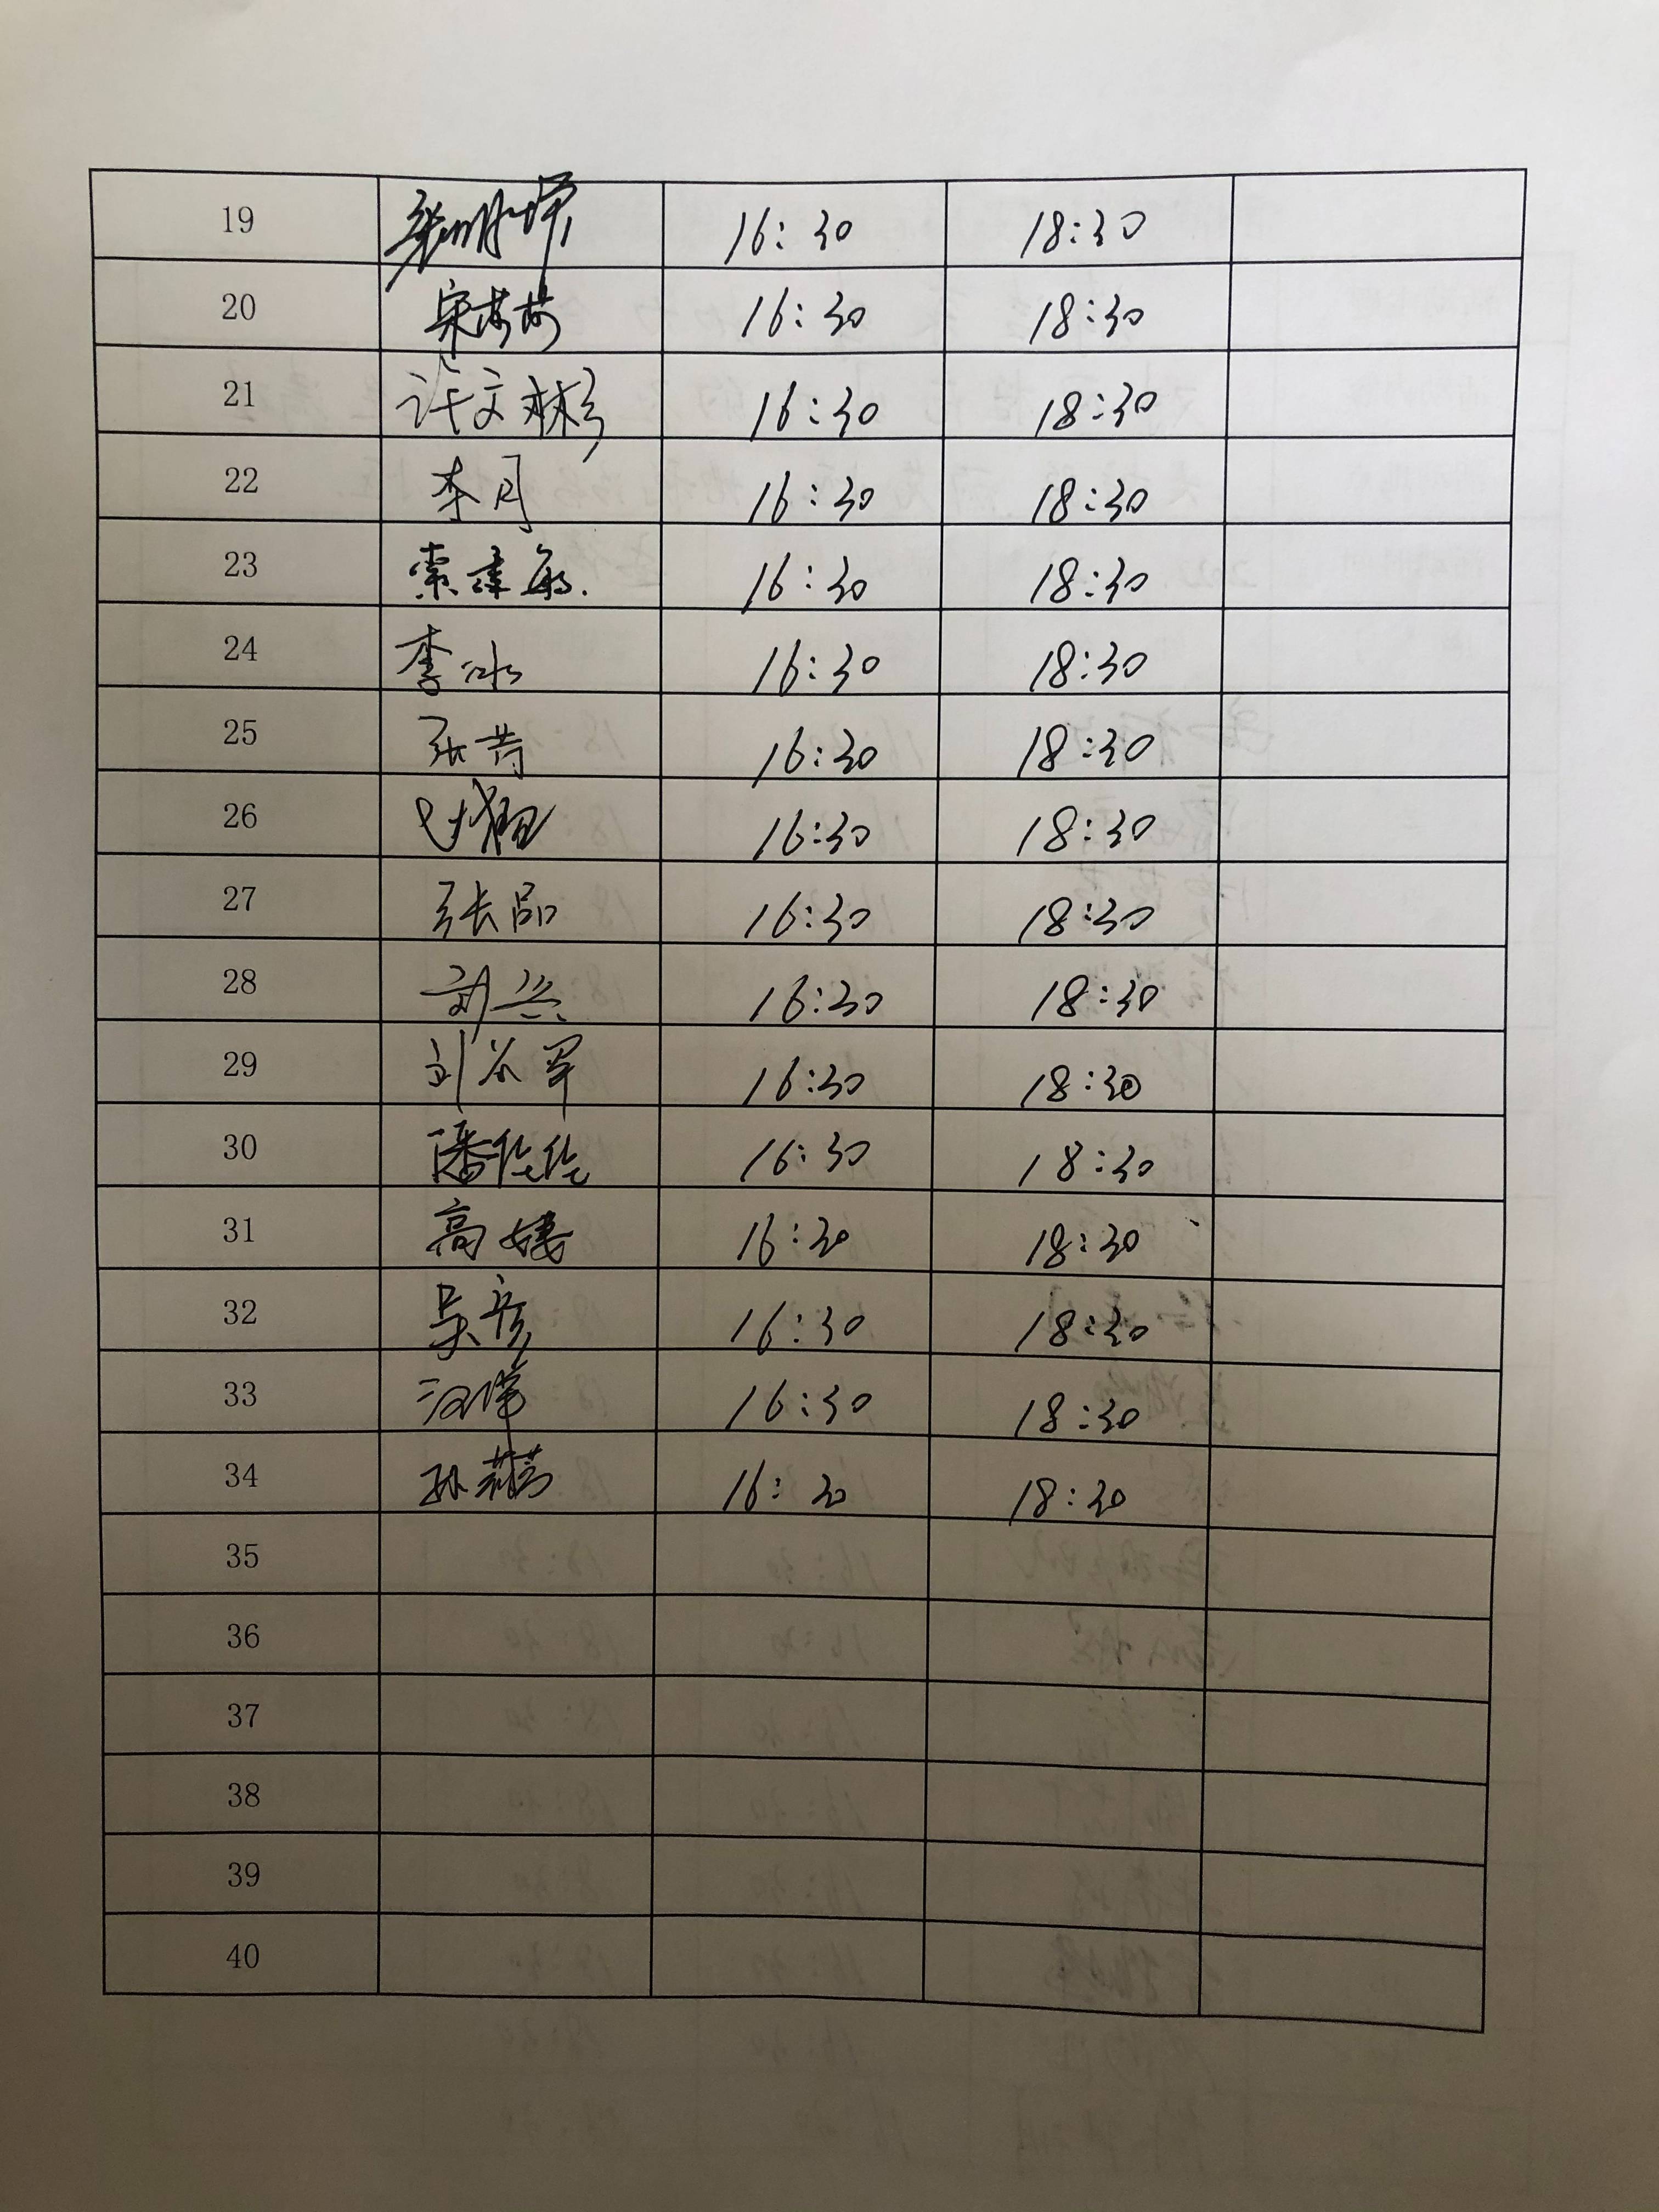 19 16:30 18:30
20 宋莎莎 16:30 18:30
21 许文彬 16:30 18:30
22 李月 16:30 18:30
23 索建敏. 16:30 18:30
24 李冰 16:30 18:30
25 张芳 16:30 18:30
26 16:30 18:30
27 张品 16:30 18:30
28 刘兴 16:30 18:30
29 刘 军 16:30 18:30
30 潘佳佳 16:30 18:30
31 高 16:30 18:30
32 吴彦 16:30 18:30
33 16:30 18:30
34 孙 16:30 18:30
35
36
37
38
39
40